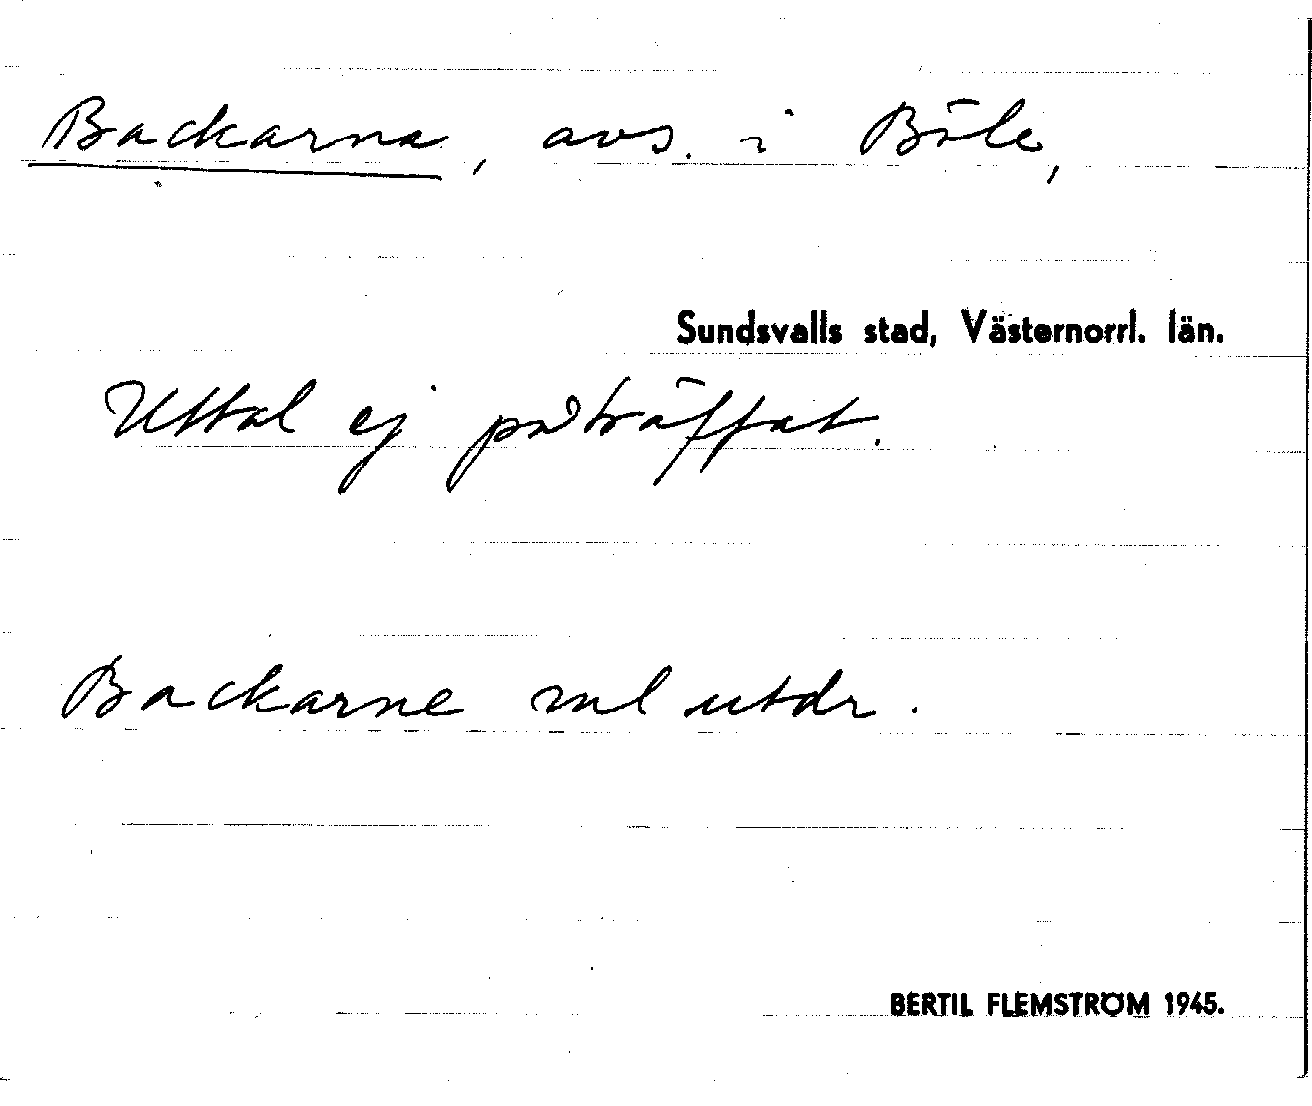 Backarna, avs. i Böle,
Sundsvalls stad, Västernorrl. län.
Uttal ej påträffat.
Backarne ml utdr.
BERTIL FLEMSTRÖM 1945.